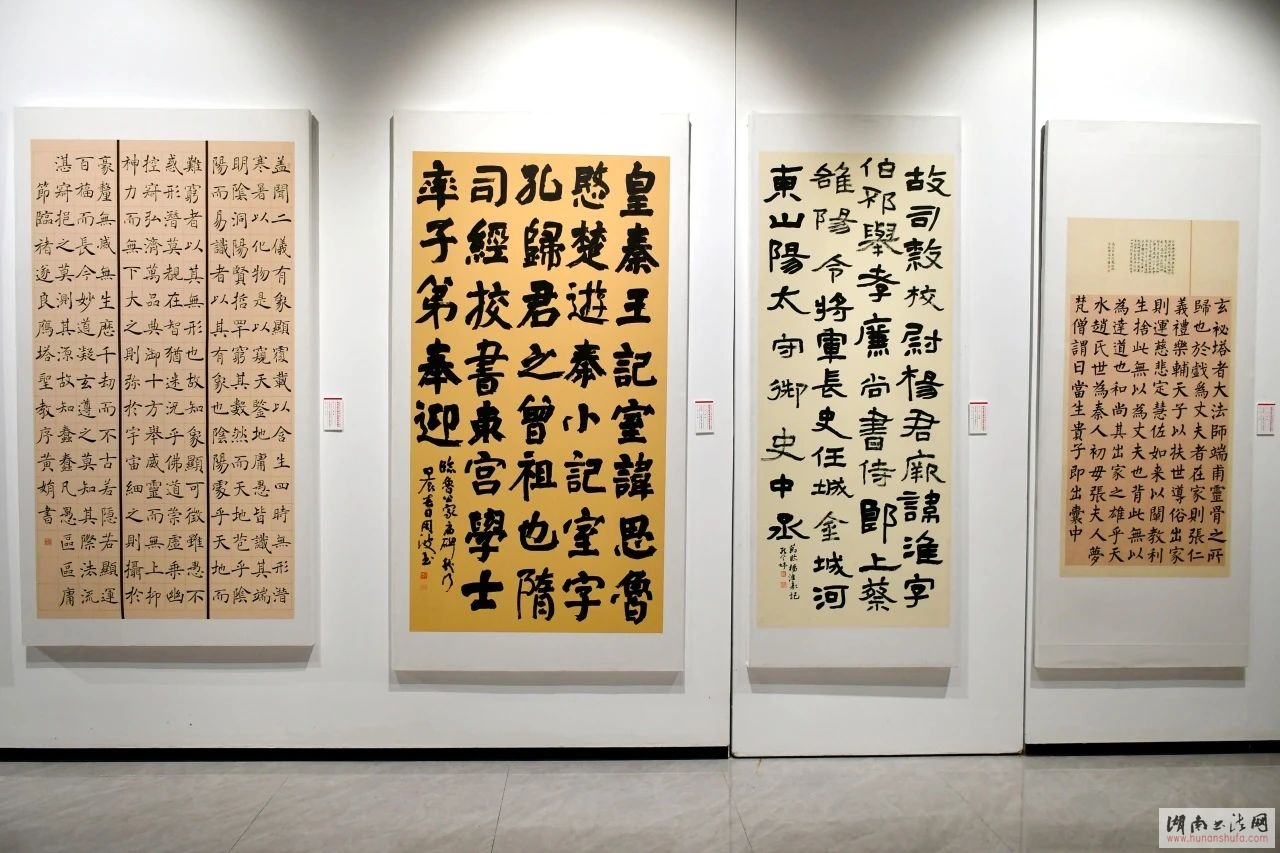 盖聞二儀有象顯覆載以含生四時無形潛
寒暑以化物是以窺天鑒地庸愚皆識其端
明陰洞陽賢哲罕窮其數然而天地苞乎陰
陽而易識者以其有象也陰陽處乎天地而
難窮者以其無形也故知象顯可徵雖愚不
惑形潛莫覩在智猶迷況乎佛道崇虛乘幽
控寂弘濟萬品典御十方舉威靈而無上抑
神力而無下大之則弥於宇宙細之則攝於
豪釐無滅無生歷千劫而不古若隱若顯運
百福而長今妙道凝玄遵之莫知其際法流
湛寂挹之莫測其源故知蠢蠢凡愚區區庸
節臨褚遂良鴈塔聖教序黄娟書
皇秦王記室諱思魯
愍楚遊秦小記室字
孔歸君之曾祖也隋
司經校書東宮學士
率子弟奉迎
故司穀校尉楊君厥諱淮字
伯邳舉孝廉尚書侍郎上蔡
雒陽令將軍長史任城金城河
東山陽太守御史中丞
玄祕塔者大法師端甫靈骨之所
歸也於戲為丈夫者在家則張仁
義禮樂輔天子以扶世導俗出家
則運慈悲定慧佐如来以闡教利
生捨此無以為丈夫也背此無以
為達道也和尚其出家之雄乎天
水趙氏世為秦人初母張夫人夢
梵僧謂曰當生貴子即出囊中
湖南书法网
www.hunanshufa.com